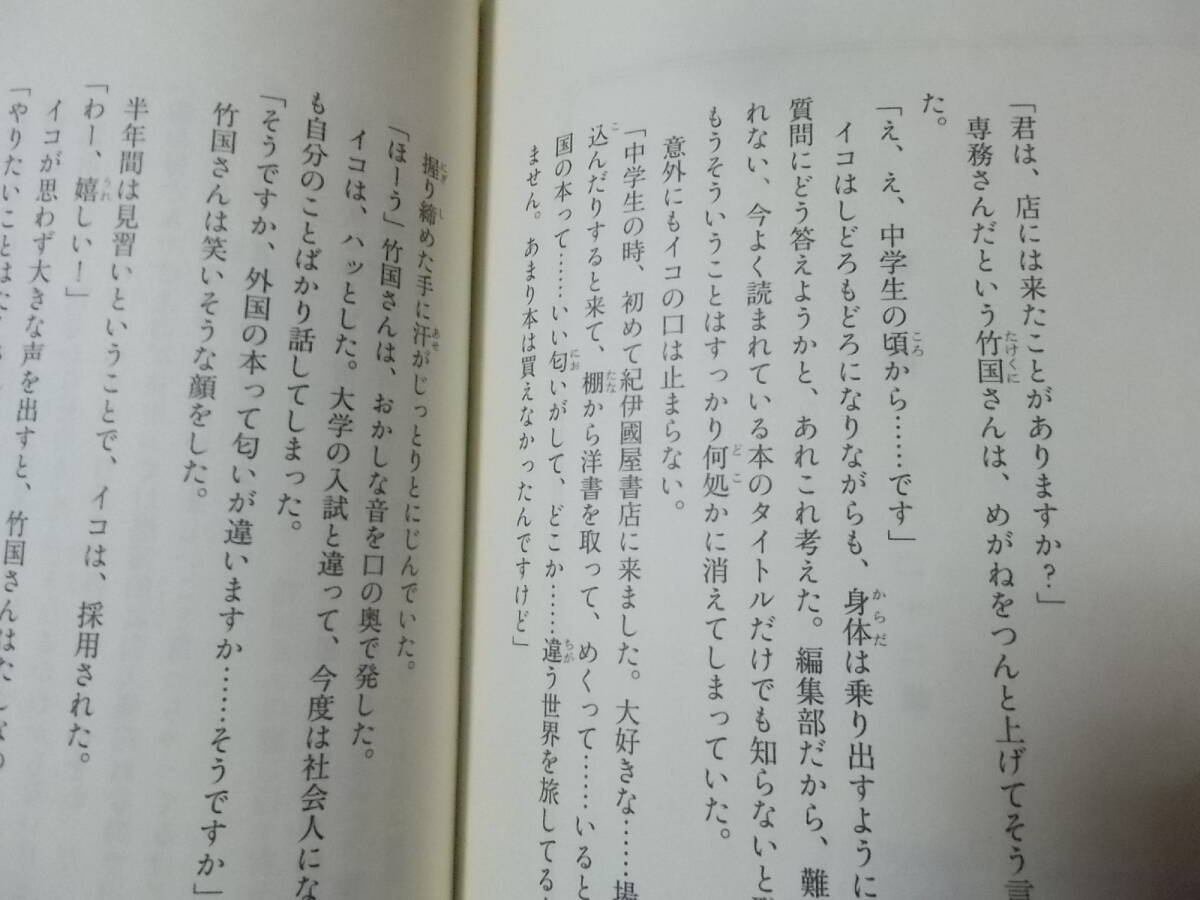 「君は、店には来たことがありますか?」
専務さんだという竹国さんは、めがねをつんと上げてそう言
た。
「え、え、中学生の頃から……です」
イコはしどろもどろになりながらも、身体は乗り出すように
質問にどう答えようかと、あれこれ考えた。編集部だから、難
れない、今よく読まれている本のタイトルだけでも知らないと
もうそういうことはすっかり何処かに消えてしまっていた。
意外にもイコの口は止まらない。
「中学生の時、初めて紀伊國屋書店に来ました。大好きな……場
込んだりすると来て、棚から洋書を取って、めくって……いると
国の本って……いい匂いがして、どこか……違う世界を旅してる
ません。あまり本は買えなかったんですけど」
握り締めた手に汗がじっとりとにじんでいた。
「ほーう」竹国さんは、おかしな音を口の奥で発した。
イコは、ハッとした。大学の入試と違って、今度は社会人にな
も自分のことばかり話してしまった。
「そうですか、外国の本って匂いが違いますか……そうですか」
竹国さんは笑いそうな顔をした。
半年間は見習いということで、イコは、採用された。
「わー、嬉しい!」
イコが思わず大きな声を出すと、竹国さんはたしなめ
「やりたいことはた